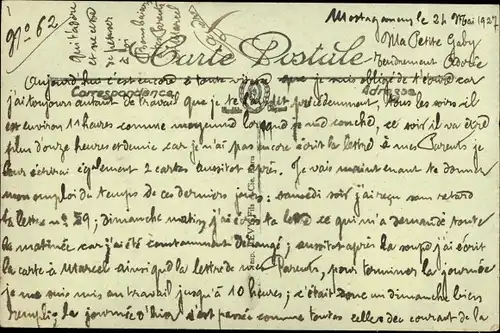 N° 62
Qui t'adore
et ne cesse
de penser
à toi
Marcel
Mostaganem le 24 Mai 1927
Ma Petite Gaby
tendrement Adorée
Carte Postale
Correspondance
Adresse
Aujourd'hui c'est encore à toute vitesse que je suis obligé de t'écrire car
j'ai toujours autant de travail que je te l'ai dit précédemment, tous les soirs il
est environ 11 heures comme moyenne lorsque je me couche, ce soir il va être
plus douze heures et demie car je n'ai pas encore écrit la lettre à mes Parents je
leur écrirai également 2 cartes aussitôt après. Je vais maintenant te donner
mon emploi du temps de ces derniers jours: samedi soir j'ai reçu sans retard
ta lettre n° 59; dimanche matin j'ai écrit ta lettre ce qui m'a demandé toute
la matinée car j'ai été constamment dérangé; aussitôt après la soupe j'ai écrit
la carte à Marcel ainsi que la lettre de mes Parents, pour terminer la journée
je me suis mis au travail jusqu'à 10 heures; c'était donc un dimanche bien
rempli; la journée d'hier s'est passée comme toutes celles du courant de la